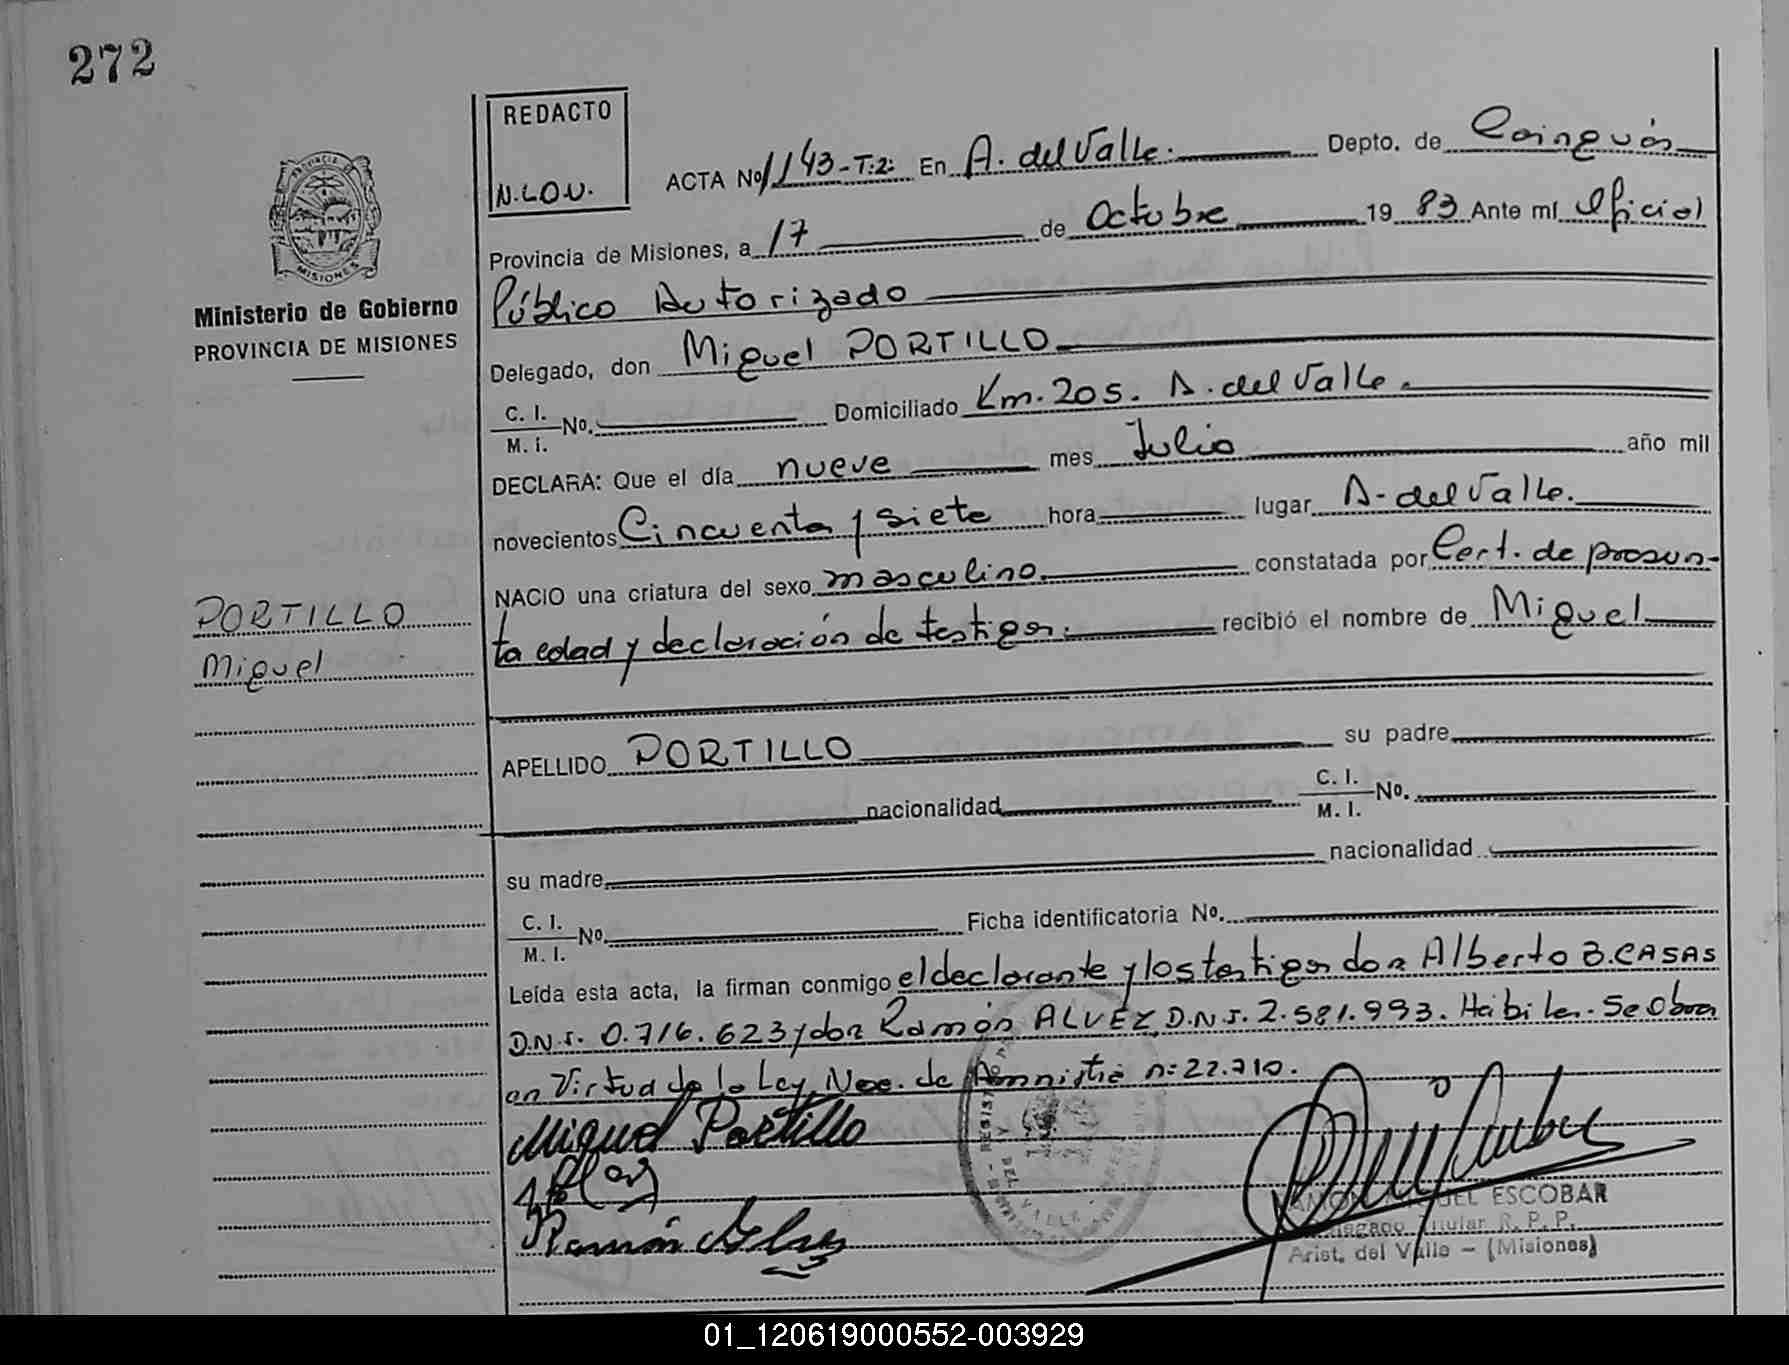 272
REDACTO
N.L.O.U.
ACTA No 1143-T:2: En A. del Valle. Depto. de Cainguás
Provincia de Misiones, a 17 de Octubre 19 83 Ante mí Oficial
Público Autorizado
Delegado, don Miguel PORTILLO
C. I. M. I. No. Domiciliado Km. 205. A. del Valle.
DECLARA: Que el día nueve mes Julio año mil
novecientos Cincuenta y siete hora lugar A. del Valle.
NACIO una criatura del sexo masculino constatada por Cert. de presun-
ta edad y declaración de testigos. recibió el nombre de Miguel
APELLIDO PORTILLO su padre
nacionalidad C. I. M. I. No.
su madre nacionalidad
C. I. M. I. No. Ficha identificatoria No.
Leída esta acta, la firman conmigo el declarante y los testigos don Alberto B. CASAS
D.N.I. 0.716.623 y don Ramón ALVEZ D.N.I. 2.581.993. Hábiles. Se Obra
en Virtud de la Ley Nac. de Amnistía n: 22.710.
Miguel Portillo
Ramón
RAMON MIGUEL ESCOBAR
Delegado Titular R. P. P.
Arist. del Valle - (Misiones)
PROVINCIA
MISIONES
Ministerio de Gobierno
PROVINCIA DE MISIONES
PORTILLO
Miguel
01_120619000552-003929